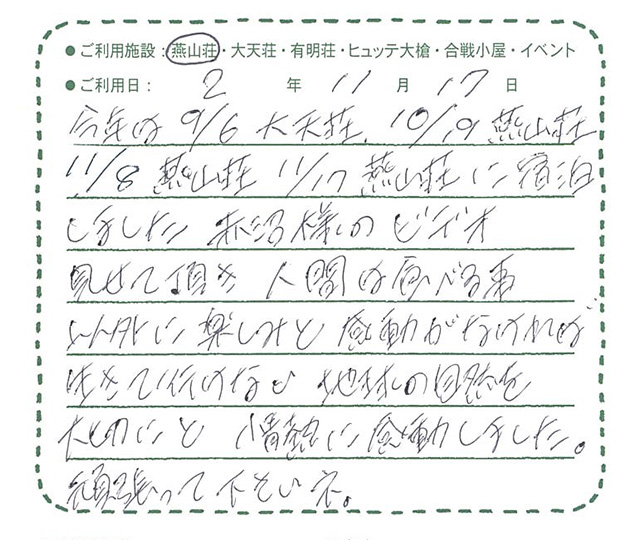 ●ご利用施設：燕山荘・大天荘・有明荘・ヒュッテ大槍・合戦小屋・イベント
●ご利用日： 2 年 11 月 17 日
今年は 9/6 大天荘、10/19 燕山荘
11/8 燕山荘 11/17 燕山荘に宿泊
しました 赤沼様のビデオ
見せて頂き 人間は食べる事
以外に楽しみと感動がなければ
生きて行けない 地球の自然を
大切にと 情熱に感動しました。
頑張って下さいネ。